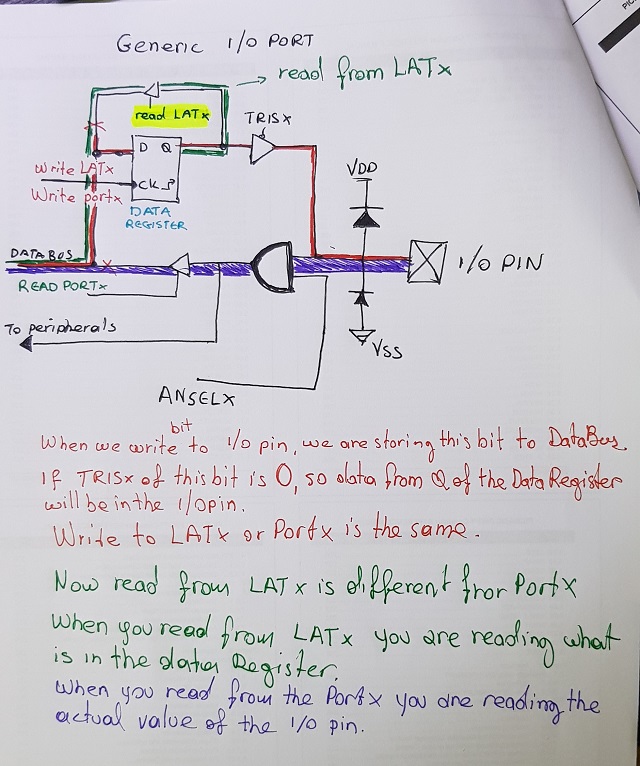 Generic I/O PORT
read from LATx
read LATx
TRISx
D Q
Write LATx
Write portx
CK
DATA
REGISTER
VDD
DATA BUS
READ PORTx
I/O PIN
To peripherals
VSS
ANSELX
bit
When we write to I/O pin, we are storing this bit to DataBus
If TRISx of this bit is 0, so data from Q of the Data Register
will be in the I/O pin.
Write to LATx or Portx is the same.
Now read from LATx is different fror Portx
When you read from LATx you are reading what
is in the data Register.
When you read from the Portx you are reading the
actual value of the I/O pin.